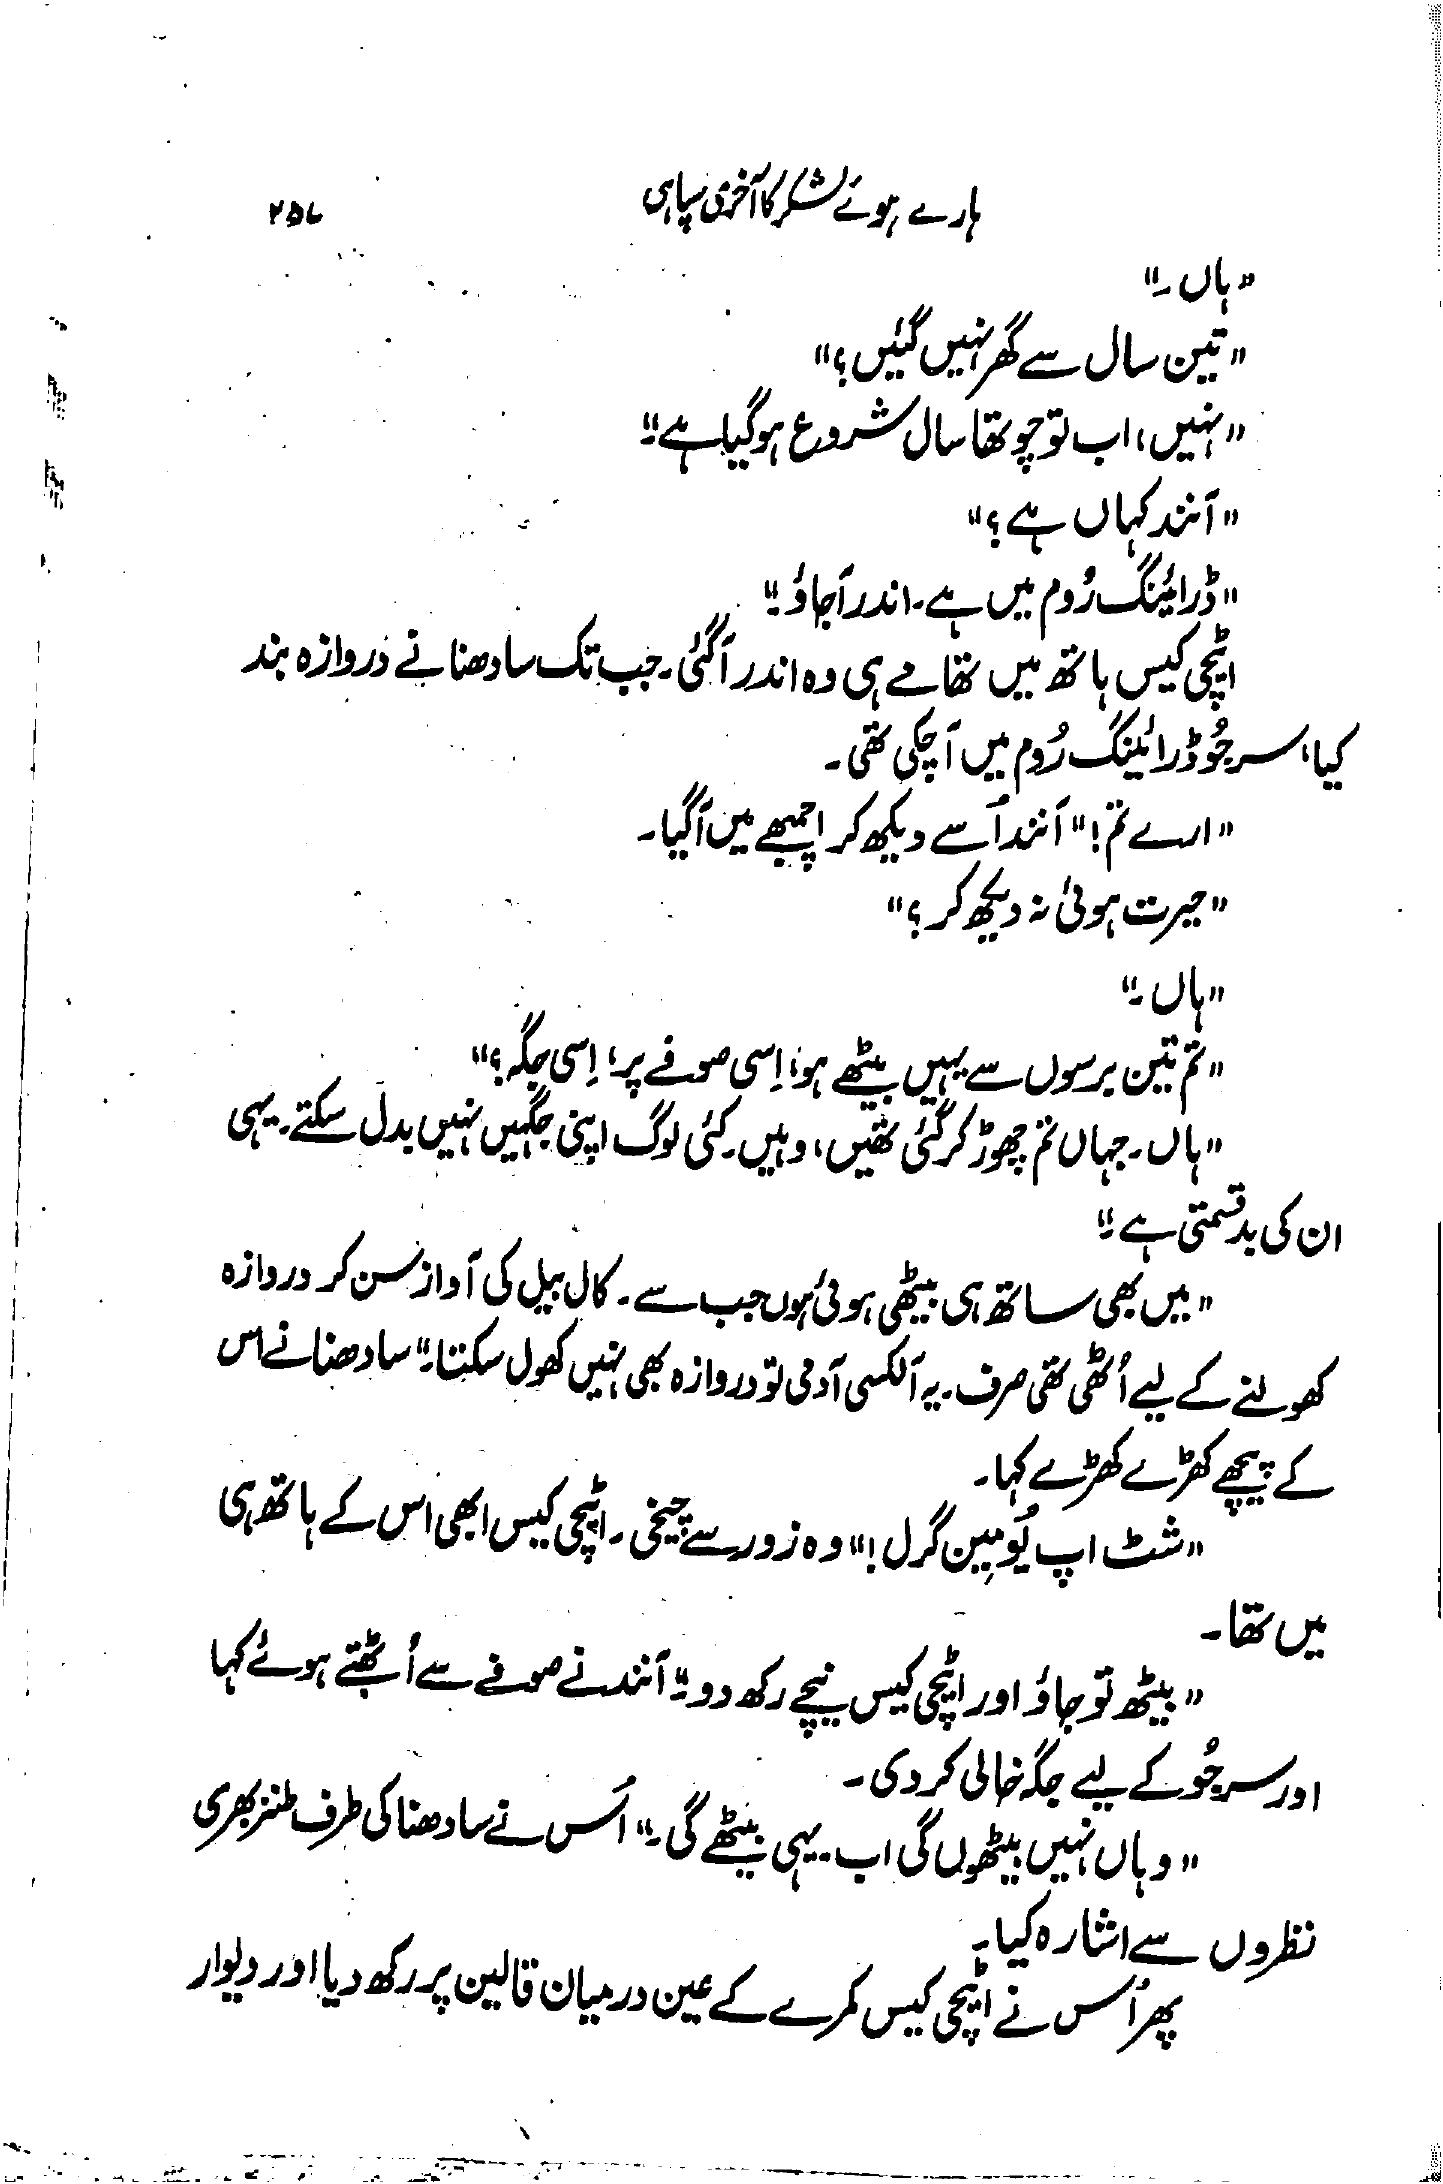 ہارے ہوئے لشکر کا آخری سپاہی ۲۵۷
"ہاں۔"
"تین سال سے گھر نہیں گئیں؟"
"نہیں، اب تو چوتھا سال شروع ہو گیا ہے۔"
"آنند کہاں ہے؟"
"ڈرائینگ رُوم میں ہے۔ اندر آجاؤ۔"
اٹیچی کیس ہاتھ میں تھامے ہی وہ اندر آگئی۔ جب تک سادھنا نے دروازہ بند
کیا، سرجُو ڈرائینگ رُوم میں آچکی تھی۔
"ارے تم!" آنند اُسے دیکھ کر اچمبھے میں آگیا۔
"حیرت ہوئی نہ دیکھ کر؟"
"ہاں۔"
"تم تین برسوں سے یہیں بیٹھے ہو، اِسی صوفے پر، اِسی جگہ؟"
"ہاں۔ جہاں تم چھوڑ کر گئی تھیں، وہیں۔ کئی لوگ اپنی جگہیں نہیں بدل سکتے۔ یہی
ان کی بدقسمتی ہے۔"
"میں بھی ساتھ ہی بیٹھی ہوئی ہوں جب سے۔ کال بیل کی آواز سن کر دروازہ
کھولنے کے لیے اُٹھی تھی صرف۔ یہ آلکسی آدمی تو دروازہ بھی نہیں کھول سکتا۔" سادھنا نے اس
کے پیچھے کھڑے کھڑے کہا۔
"شٹ اپ یُو مِین گرل!" وہ زور سے چیخی۔ اٹیچی کیس ابھی اس کے ہاتھ ہی
میں تھا۔
"بیٹھ تو جاؤ اور اٹیچی کیس نیچے رکھ دو۔" آنند نے صوفے سے اُٹھتے ہوئے کہا
اور سرجُو کے لیے جگہ خالی کر دی۔
"وہاں نہیں بیٹھوں گی اب۔ یہی بیٹھے گی۔" اُس نے سادھنا کی طرف طنز بھری
نظروں سے اشارہ کیا۔
پھر اُس نے اٹیچی کیس کمرے کے عین درمیان قالین پر رکھ دیا اور دیوار